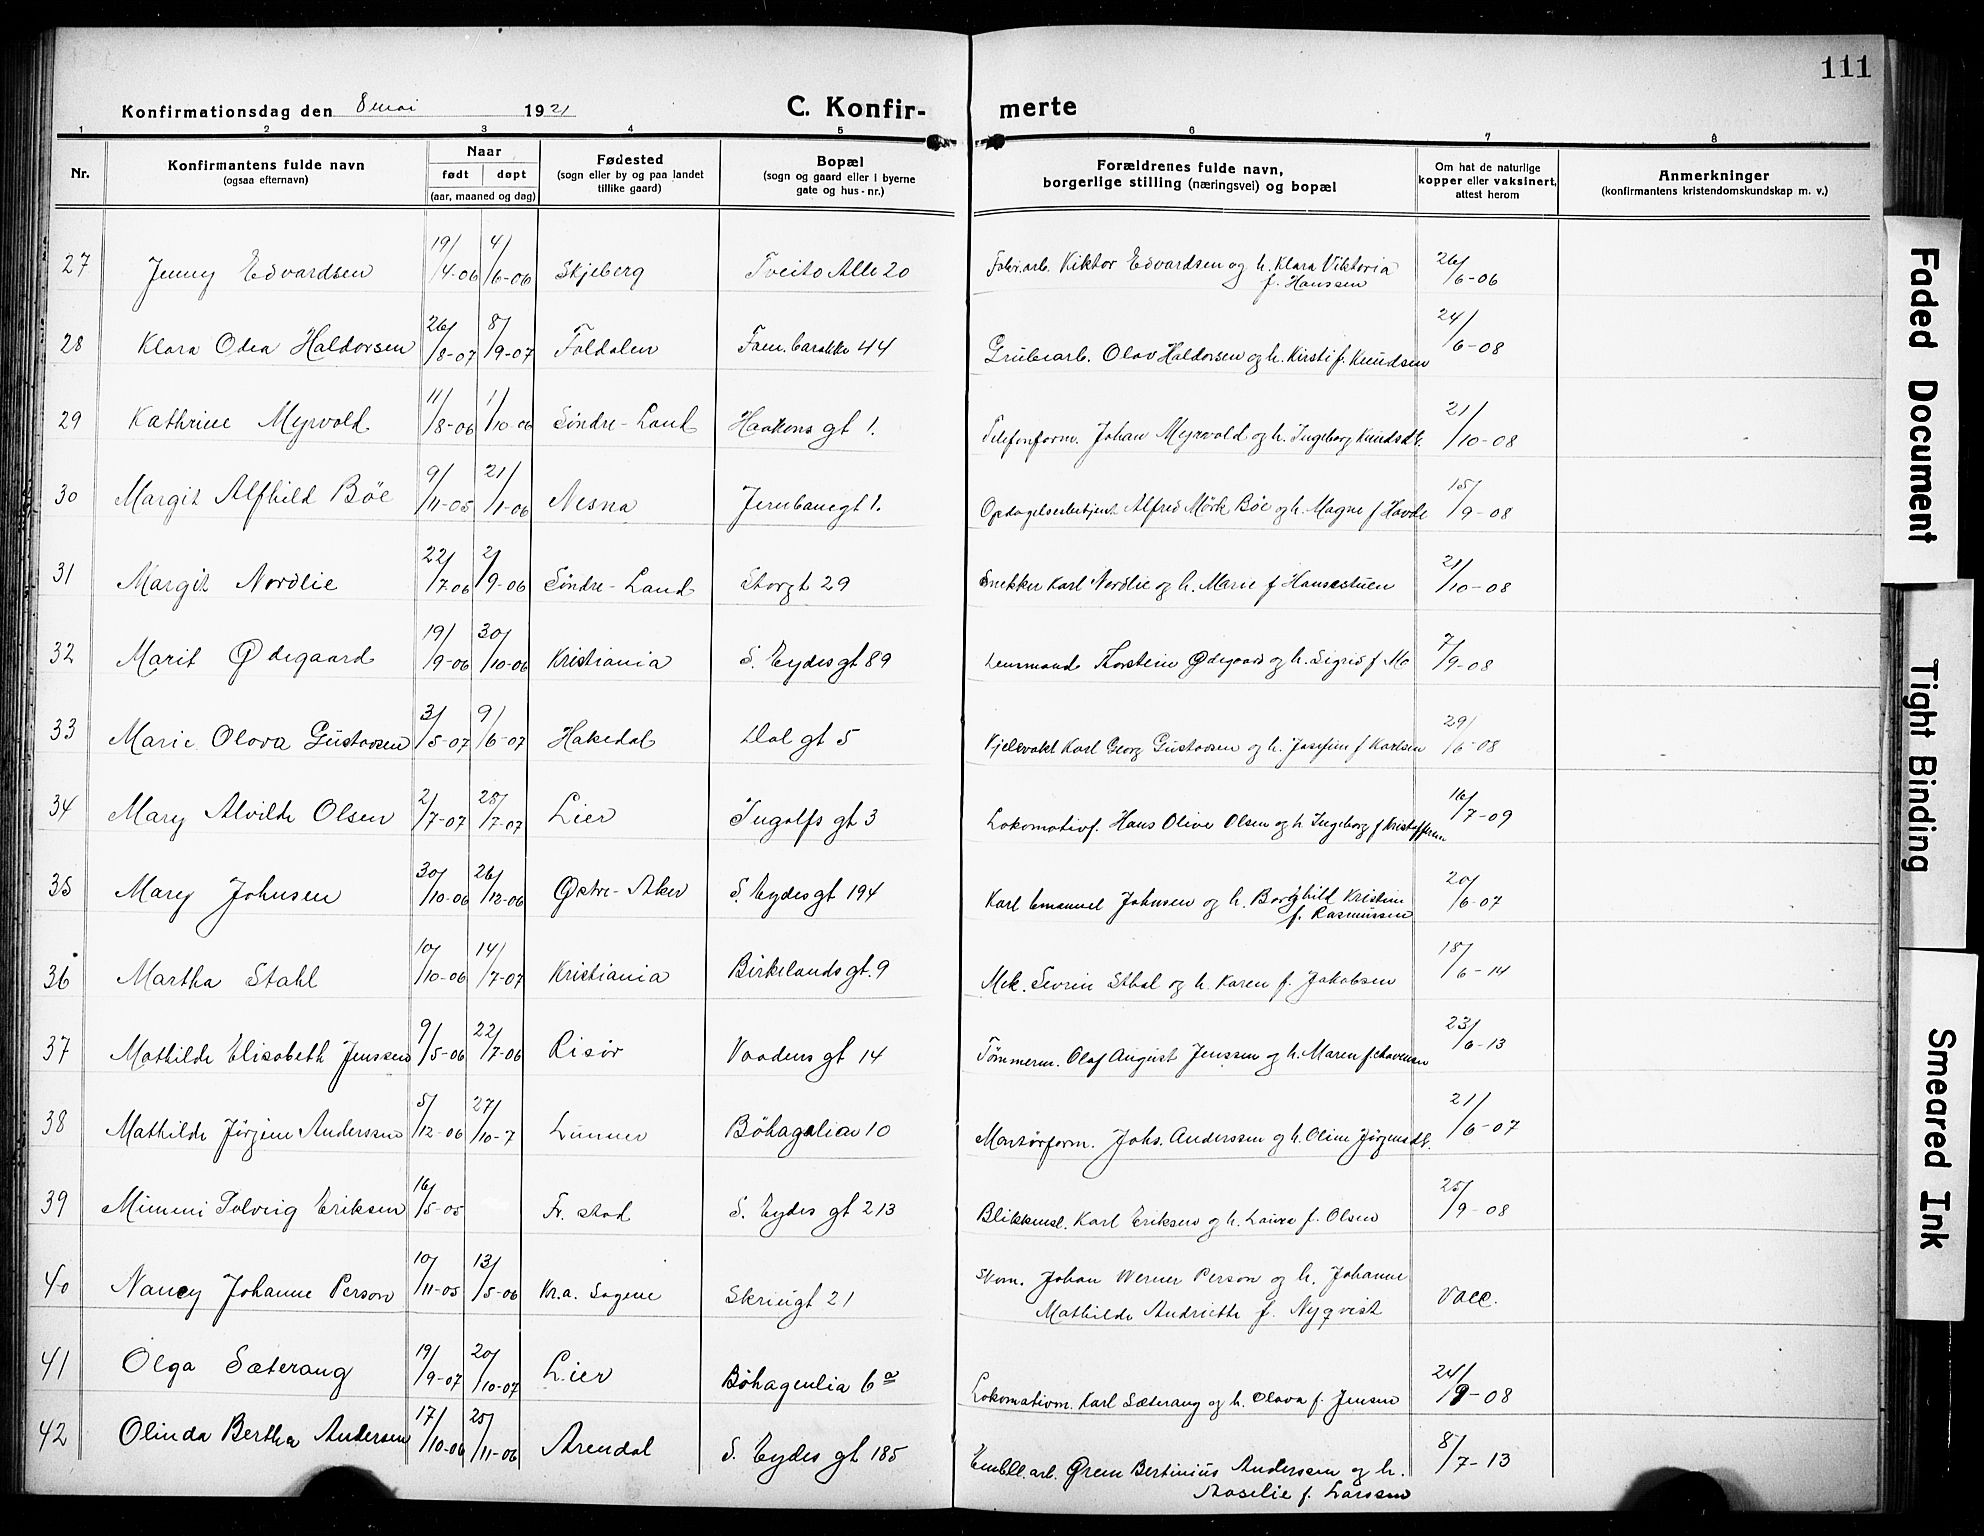 111
Konfirmationsdag den 8 mai 1921 C. Konfir- merte
1 2 3 4 5 6 7 8
Nr. Konfirmantens fulde navn (ogsaa efternavn) Naar født døpt (aar, maaned og dag) Fødested (sogn eller by og paa landet tillike gaard) Bopæl (sogn og gaard eller i byerne gate og hus-nr.) Forældrenes fulde navn, borgerlige stilling (næringsvei) og bopæl Om hat de naturlige kopper eller vaksinert, attest herom Anmerkninger (konfirmantens kristendomskundskap m. v.)
27 Jenny Edvardsen 19/4-06 4/6-06 Skjeberg Tveito Alle 20 Fabr.arb. Viktor Edvardsen og h. Klara Viktoria f. Hanssen 26/6-06
28 Klara Odea Haldorsen 26/8-07 8/9-07 Foldalen Fam. barakke 44 Grubearb. Olav Haldorsen og h. Kirsti f. Knudsen 24/6-08
29 Kathrine Myrvold 11/8-06 1/10-06 Søndre-Land Haakons gt 1. Telefonform. Johan Myrvold og h. Ingeborg Knudsdt. 21/10-08
30 Margit Alfhild Bøe 9/11-05 21/1-06 Nesna Jernbanegt 1. Opdagelsesbetjent Alfred Mørk Bøe og h. Magne f Havde 15/9-08
31 Margit Nordlie 22/7-06 2/9-06 Søndre-Land Storgt 29 Snekker Karl Nordlie og h. Marie f Hansestuen 21/10-08
32 Marit Ødegaard 19/9-06 30/10-06 Kristiania S. Eydesgt 89 Lensmand Thorstein Ødegaard og h. Sigrid f Mo 7/9-08
33 Marie Olava Gustavsen 3/5-07 9/6-07 Hakedal Dal gt 5 Kjelevakt Karl Georg Gustavsen og h. Josefine f Karlsen 29/6-08
34 Mary Alvilde Olsen 2/7-07 28/7-07 Lier Ingolfs gt 3 Lokomotivf. Hans Oliver Olsen og h Ingeborg f Kristoffersen 16/7-09
35 Mary Johnsen 30/10-06 26/12-06 Østre-Aker S. Eydesgt 194 Karl Emanuel Johnsen og h. Borghild Kristine f. Rasmussen 20/6-07
36 Martha Stahl 10/10-06 14/7-07 Kristiania Birkelandsgt. 9 Mek. Sevrin Sthal og h. Karen f. Jakobsen 18/6-14
37 Mathilde Elisabeth Jenssen 9/5-06 22/7-06 Risør Vaadens gt 14 Tømmerm. Olaf August Jenssen og h. Maren f. 23/6-13
38 Mathilde Jørgine Anderssen 5/12-06 27/10-7 Lunner Bøhagalian 10 Montørform. Johs. Anderssen og h. Oline Jørgensdt. 21/6-07
39 Mimmi Solveig Eriksen 16/5-05 Fr. stad S. Eydes gt 213 Blikkensl. Karl Eriksen og h. Laura f. Olsen 25/9-08
40 Nancy Johanne Person 10/11-05 13/5-06 Kr.a. Sagene Skriugt 21 Skom. Johan Werner Person og h. Johanne Mathilde Andriette f. Nyqvist Vacc.
41 Olga Sæterang 19/9-07 20/10-07 Lier Bøhagenlia 6a Lokomotivm. Karl Sæterang og h. Olava f. Jensen 24/9-08
42 Olinda Berthea Andersen 17/10-06 25/11-06 Arendal S. Eydes gt 185 Emball.arb. Grem Bertinius Anderssen og h. Aaselie f. Larssen 8/7-13
Faded Document
Tight Binding
Smeared Ink